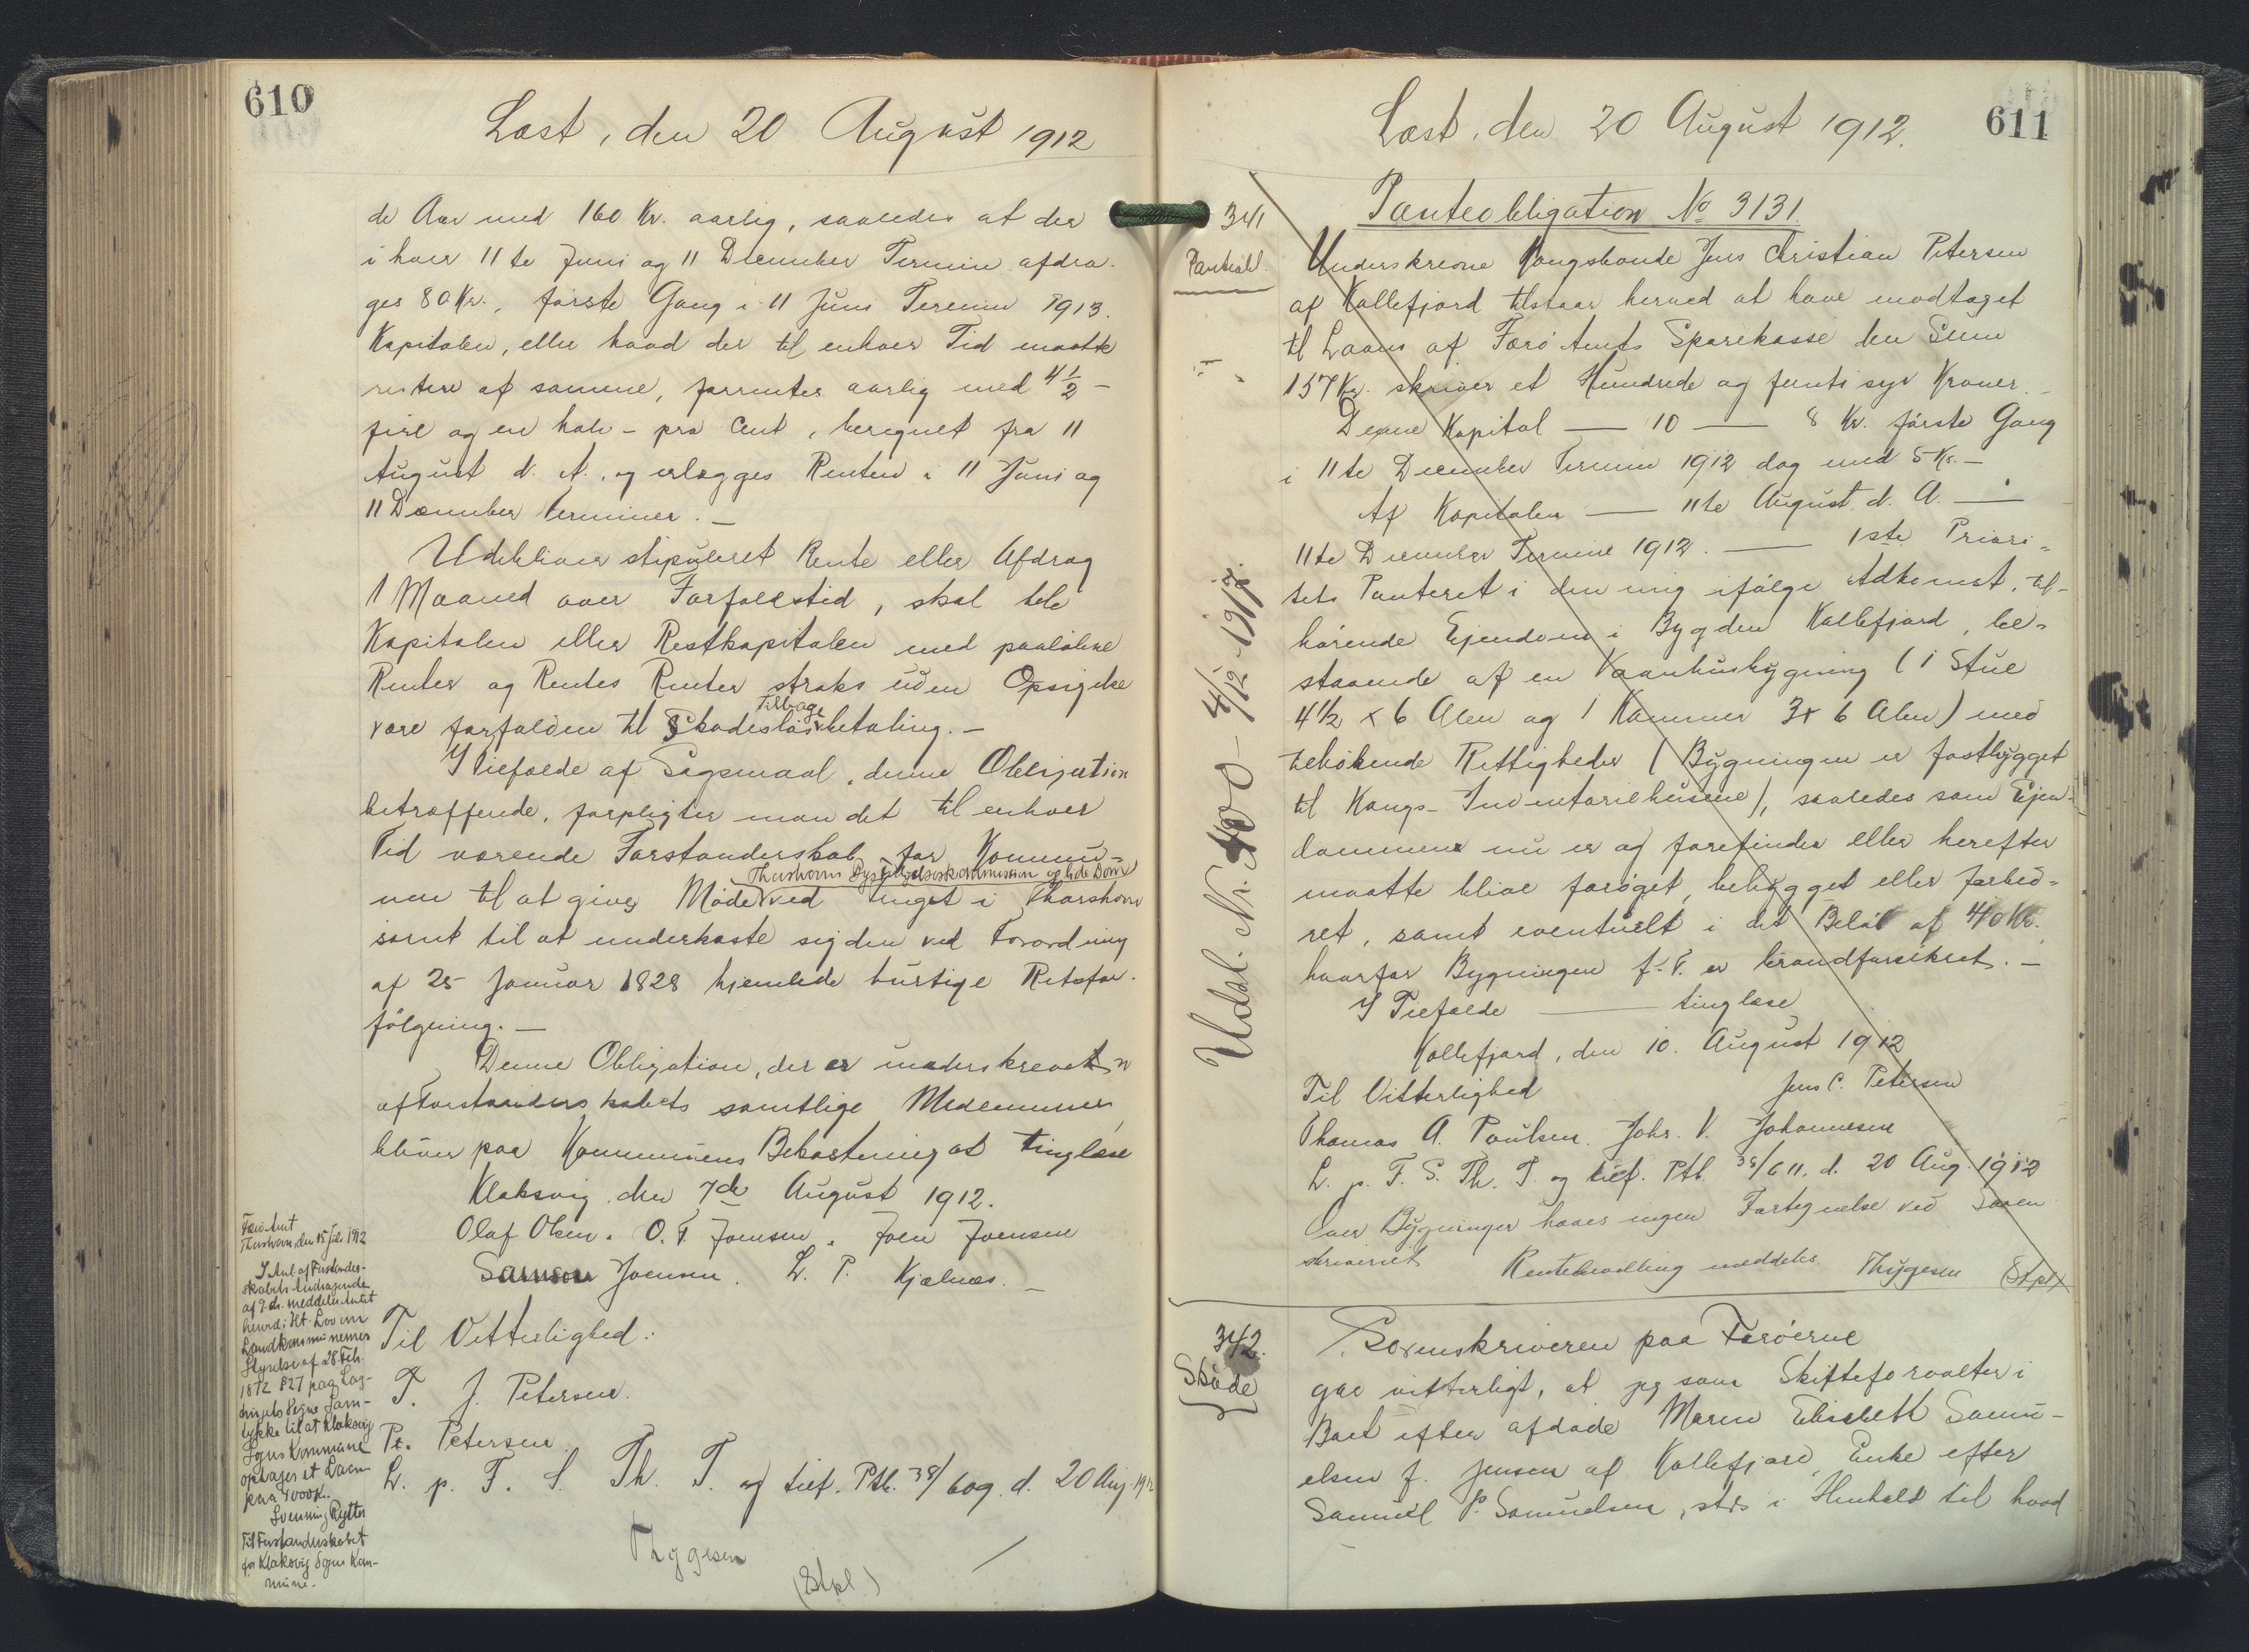 610
Læst, den 20 August 1912
de Aar med 160 Kr. aarlig, saaledes at der
i hver 11te Juni og 11 December Termin afdra-
ges 80 Kr., første Gang i 11 Juni Termin 1913.
Kapitalen, eller hvad der til enhver Tid maatte
restere af samme, forrentes aarlig med 4 1/2 -
fire og en halv - pro Cent, beregnet fra 11
August d. A., og erlægges Renten i 11 Juni og
11 December Terminer. -
Udebliver stipuleret Rente eller Afdrag
1 Maaned over Forfaldstid, skal hele
Kapitalen eller Restkapitalen med paaløbne
Renter og Rentes Renter straks uden Opsigelse
Tilbage
være forfalden til Skadesløsbetaling. -
I Tilfælde af Søgsmaal, denne Obligation
betræffende, forpligter man det til enhver
Tid værende Forstanderskab for Kommu-
Thorshavns Gjældskommission og lide Dom
nen til at give Møde ved Tinget i Thorshavn
samt til at underkaste sig den ved Forordning
af 25 Januar 1828 hjemlede hurtige Retsfor-
følgning. -
Denne Obligation, der er underskrevet
af Forstanderskabets samtlige Medlemmer,
bliver paa Kommunens Bekostning at tinglæse
Klaksvig, den 7de August 1912.
Olaf Olsen. O. F. Joensen. Joen Joensen
Samson Joensen. L. P. Kjølnæs. -
Til Vitterlighed:
T. J. Petersen.
Pt. Petersen.
L. p. F. S. Th. T. og tilf. Ptb. 38/609 d. 20 Aug. 1912
Thygesen
(Stpl.)
Færø Amt
Thorshavn, den 15 Juli 1912
I Anl. af Forstander-
skabets Andragende
af 9. ds. meddeler Amtet
herved i Hht. Lov om
Landkommunernes
Styrelse af 28 Feb.
1872 § 27 paa Lag-
tingets Vegne Sam-
tykke til at Klaksvig
Sogns Kommune
optager et Laan
paa 4000 Kr.
Svenning Rytter
Til Forstanderskabet
for Klaksvig Sogns Kom-
mune.
611
Læst, den 20 August 1912.
341
Panteobl.
Udsl. Nr. 400 - 4/12-1917.
Panteobligation No 3131.
Underskrevne Kongsbonde Jens Christian Petersen
af Kollefjord tilstaar herved at have modtaget
til Laans af Færø Amts Sparekasse den Sum
157 Kr. skriver et Hundrede og femti syv Kroner. -
Denne Kapital — 10 — 8 Kr. første Gang
i 11te December Termin 1912 dog med 5 Kr. -
Af Kapitalen — 11te August d. A. —
11te December Termin 1912. — 1ste Priori-
tets Panteret i den mig ifølge Adkomst, til-
hørende Ejendom i Bygden Kollefjord, be-
staaende af en Vaanhusbygning (1 Stue
4 1/2 x 6 Alen og 1 Kammer 3 x 6 Alen) med
tilhørende Rettigheder (Bygningen er fastbygget
til Kongs-Inventariehusene), saaledes som Ejen-
dommene nu er og forefindes eller herefter
maatte blive forøget, bebygget eller forbed-
ret, samt eventuelt i det Beløb af 40 Kr.
hvorfor Bygningen f. T. er brandforsikret. -
I Tilfælde — tinglæse
Kollefjord, den 10. August 1912
Til Vitterlighed Jens C. Petersen
Thomas A. Poulsen. Johs. V. Johannesen
L. p. F. S. Th. T. og tilf. Ptb. 38/611. d. 20 Aug. 1912
Over Bygninger haves ingen Fortegnelse ved Soren-
skriveriet Rentebevilling meddeles Thygesen (Stpl)
342.
Skøde
Sorenskriveren paa Færøerne
gør vitterligt, at jeg som Skifteforvalter i
Boet efter afdøde Maren Elisabeth Samu-
elsen f. Jensen af Kollefjord, Enke efter
Samuel P. Samuelsen, stds i Henhold til hvad